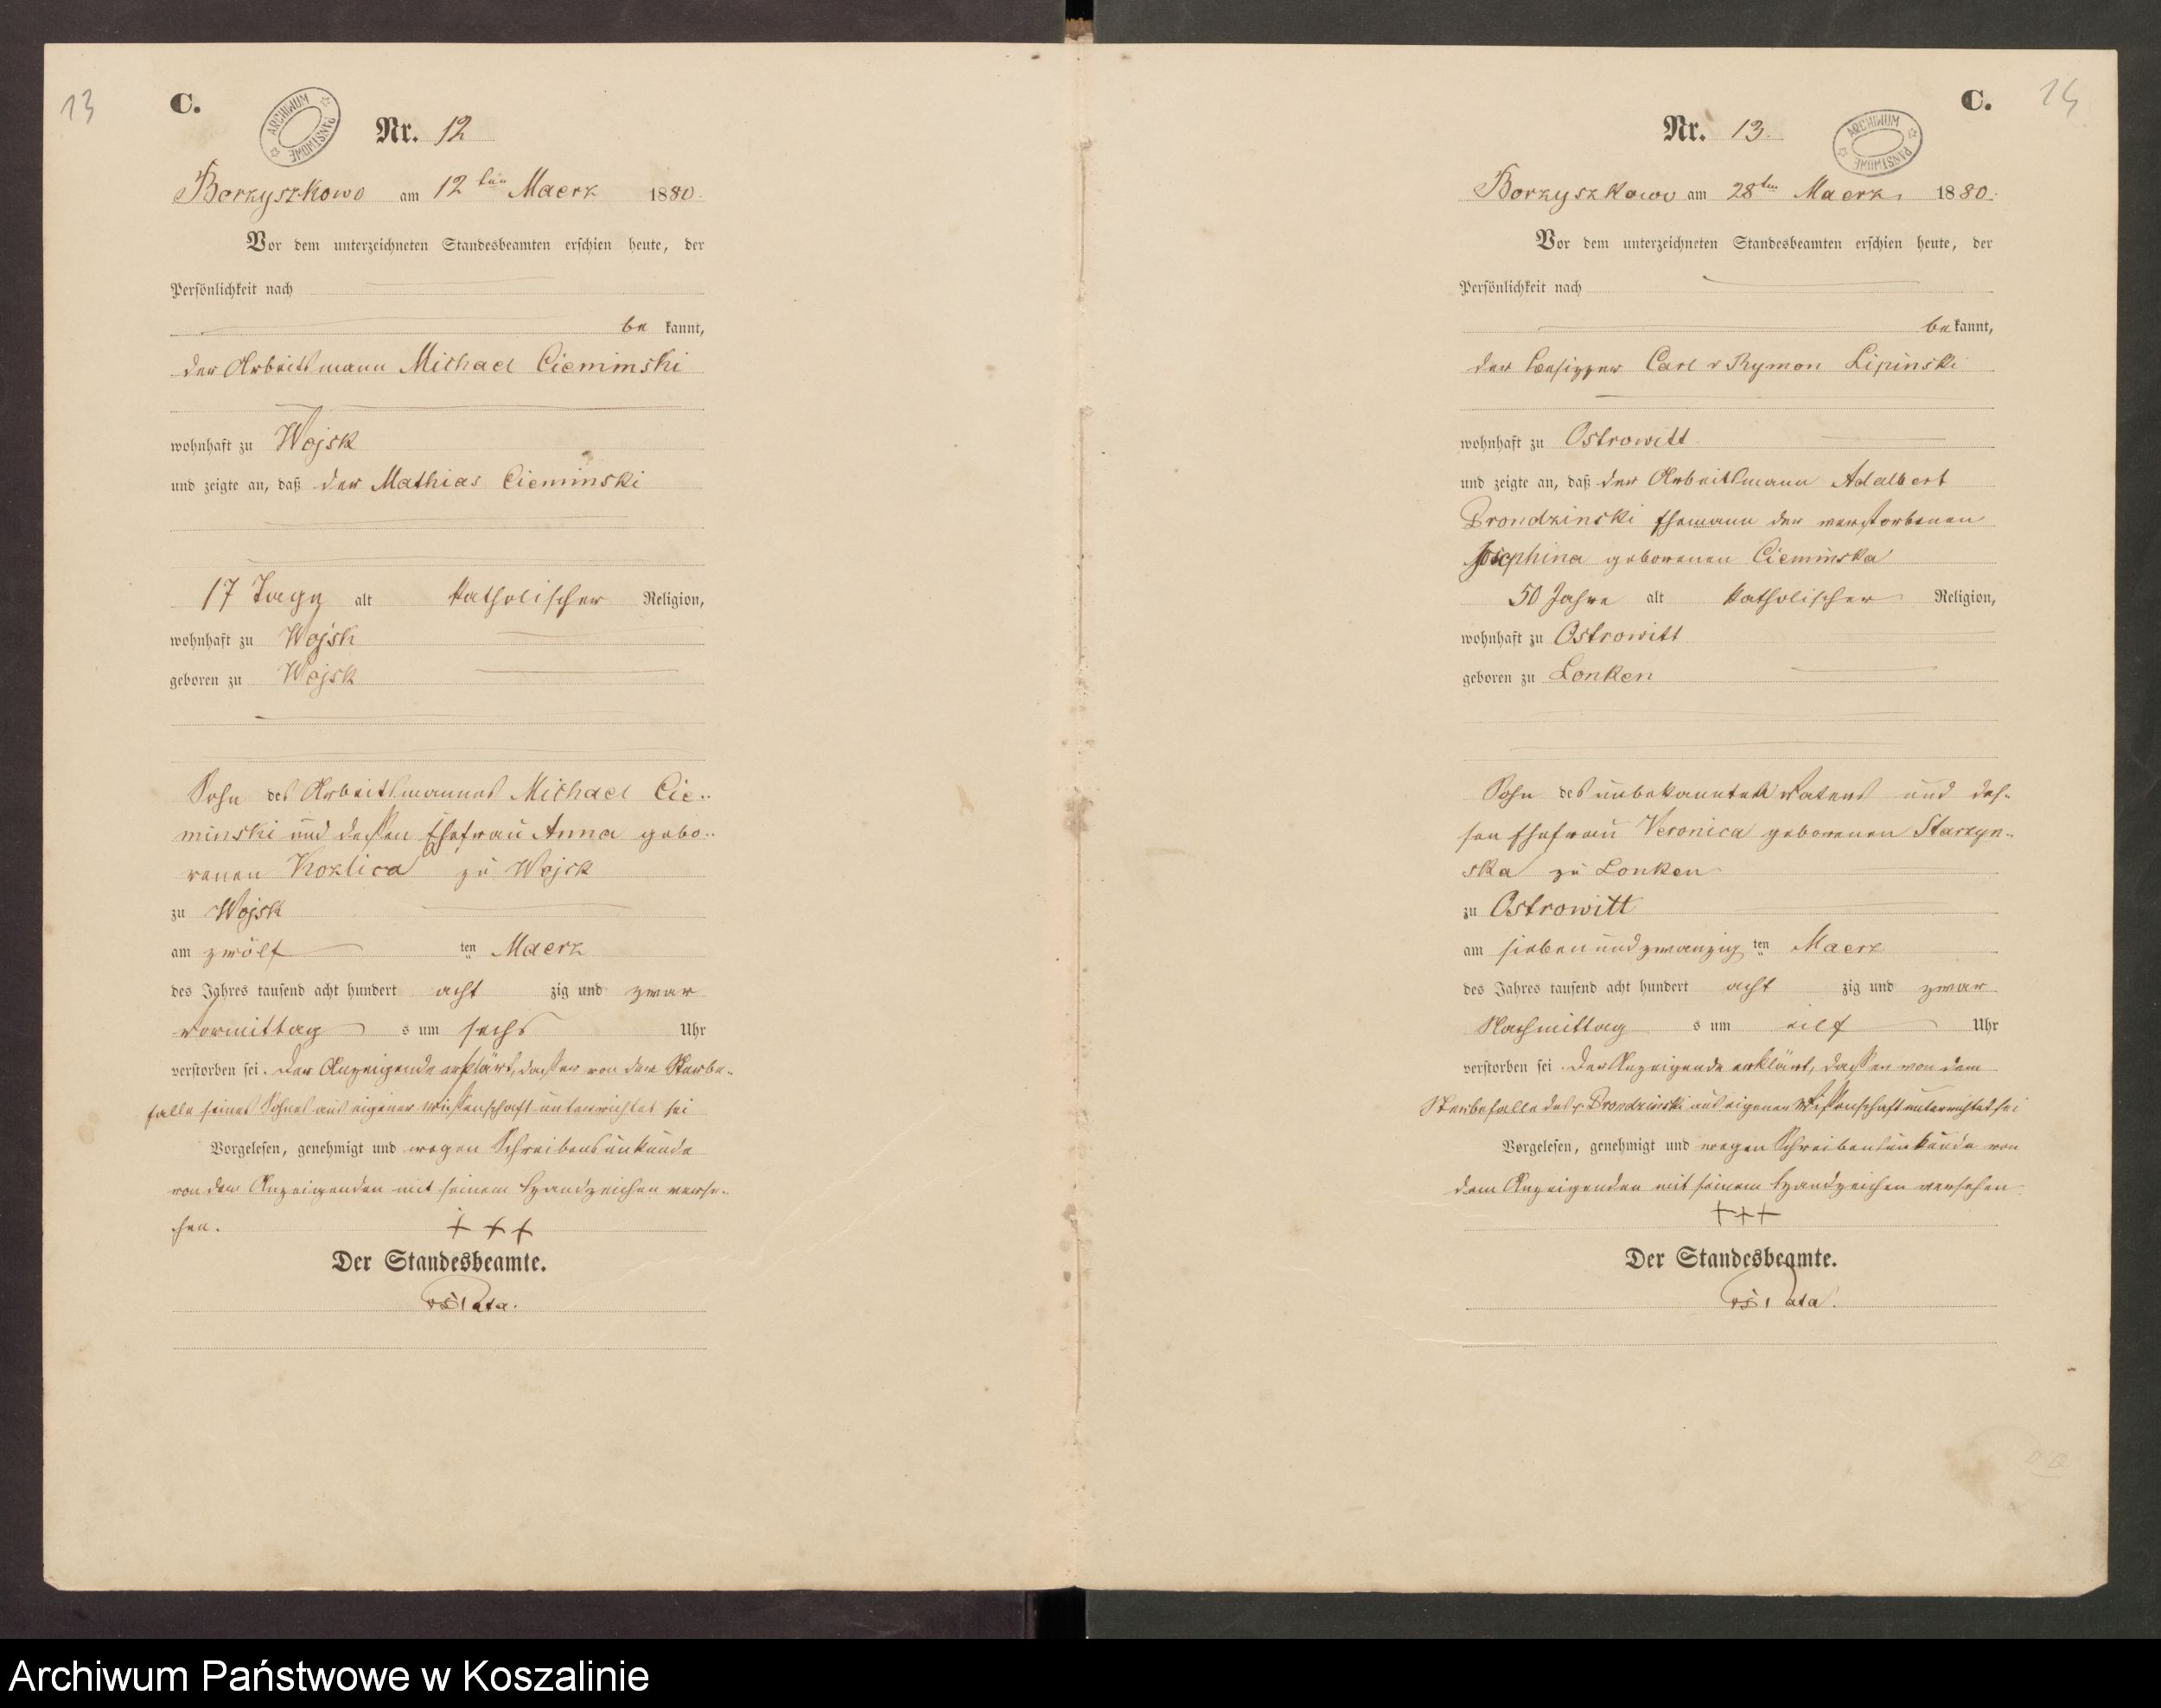 13
C.
ARCHIWUM PAŃSTWOWE
Nr. 12
Borzyszkowo am 12ten Maerz 1880.
Vor dem unterzeichneten Standesbeamten erschien heute, der
Persönlichkeit nach
be kannt,
der Arbeitsmann Michael Cieminski
wohnhaft zu Wojsk
und zeigte an, daß der Mathias Cieminski
17 Tage alt katholischer Religion,
wohnhaft zu Wojsk
geboren zu Wojsk
Sohn des Arbeitsmannes Michael Cie-
minski und dessen Ehefrau Anna gebo-
renen Kozlica zu Wojsk
zu Wojsk
am zwölf ten Maerz
des Jahres tausend acht hundert acht zig und zwar
vormittag s um sechs Uhr
verstorben sei. Der Anzeigende erklärt, dass er von dem Sterbe-
falle seines Sohnes aus eigener Wissenschaft unterrichtet sei
Vorgelesen, genehmigt und wegen Schreibensunkunde
von dem Anzeigenden mit seinem Handzeichen verse-
hen. + + +
Der Standesbeamte.
14
C.
ARCHIWUM PAŃSTWOWE
Nr. 13.
Borzyszkowo am 28ten Maerz 1880.
Vor dem unterzeichneten Standesbeamten erschien heute, der
Persönlichkeit nach
be kannt,
der Besitzer Carl v Rymon Lipinski
wohnhaft zu Ostrowitt
und zeigte an, daß der Arbeitsmann Adalbert
Brondzinski Ehemann der verstorbenen
Josephina geborenen Cieminska
50 Jahre alt katholischer Religion,
wohnhaft zu Ostrowitt
geboren zu Lonken
Sohn des unbekannten Vaters und des-
sen Ehefrau Veronica geborenen Starzyn-
ska zu Lonken
zu Ostrowitt
am siebenundzwanzig ten Maerz
des Jahres tausend acht hundert acht zig und zwar
Nachmittag s um eilf Uhr
verstorben sei. Der Anzeigende erklärt, dass er von dem
Sterbefalle des p. Brondzinski aus eigener Wissenschaft unterrichtet sei
Vorgelesen, genehmigt und wegen Schreibensunkunde von
dem Anzeigenden mit seinem Handzeichen versehen
+++
Der Standesbeamte.
Archiwum Państwowe w Koszalinie